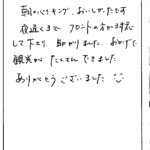 朝のバイキング、おいしかったです
夜遅くまで、フロントの方が対応
して下さり、助かりました。おかげで
観光が たくさん できました
ありがとうございました